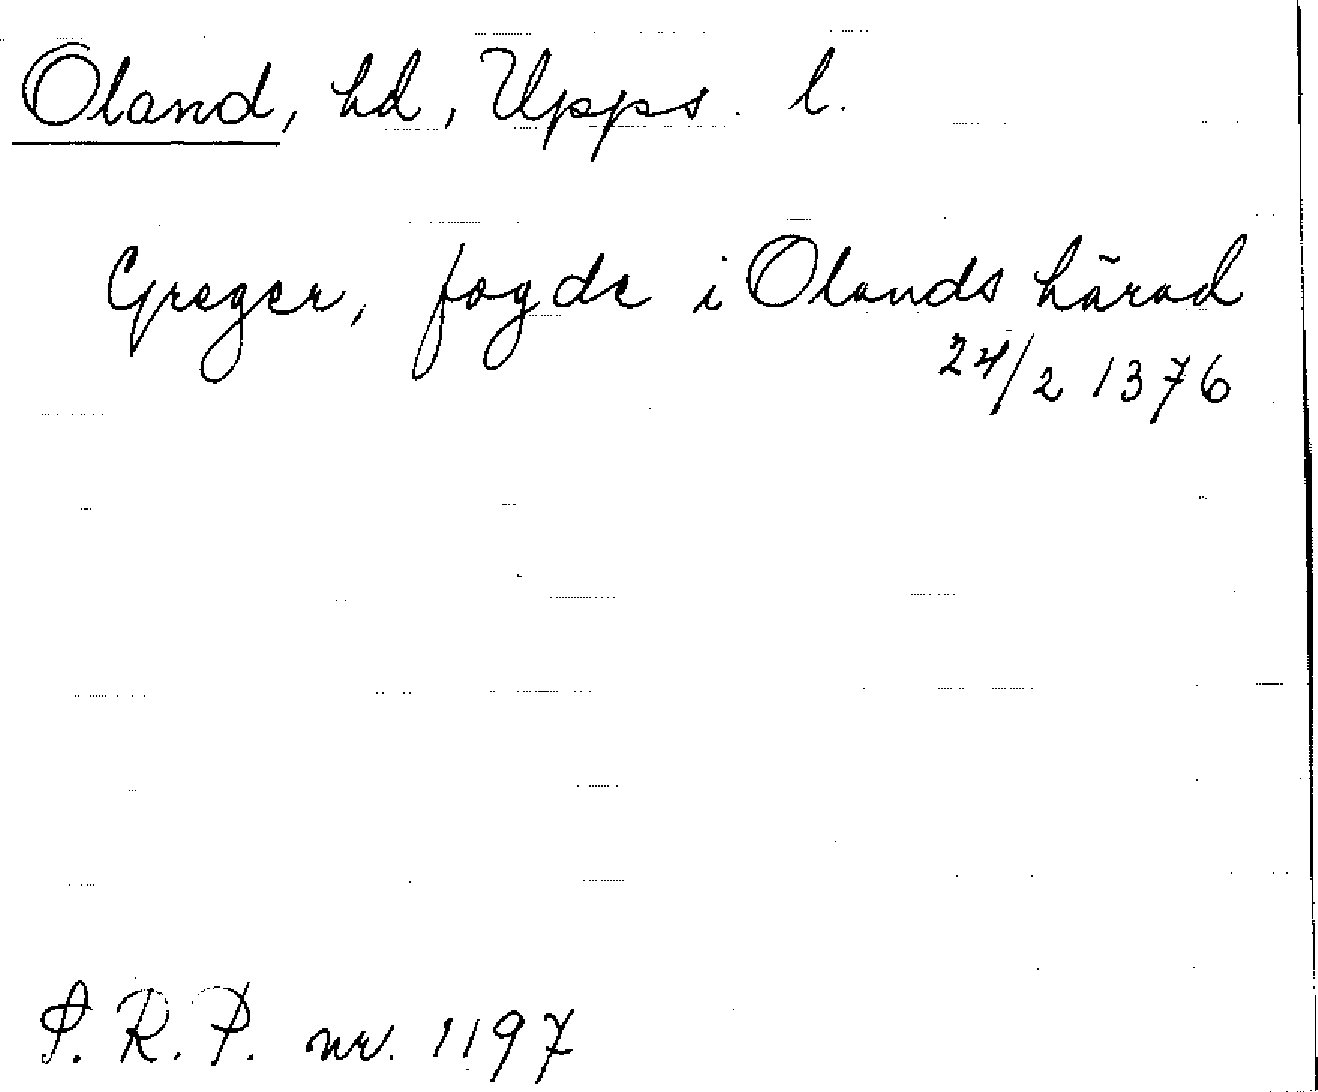 Oland, hd, Upps. l.
Greger, fogde i Olands härad
24/2 1376
S. R. P. nr. 1197